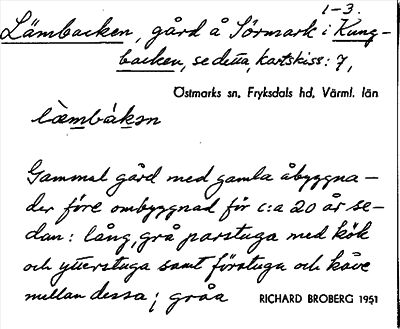 1-3.
Lämbacken, gård å Sörmark i Kung-
backen, se detta, kartskiss: 7,
Östmarks sn, Fryksdals hd, Värml. län
Gammal gård med gamla åbyggna-
der före ombyggnad för c:a 20 år se-
dan: lång, grå parstuga med kök
och ytterstuga samt förstuga och kove
mellan dessa; gråa
RICHARD BROBERG 1951